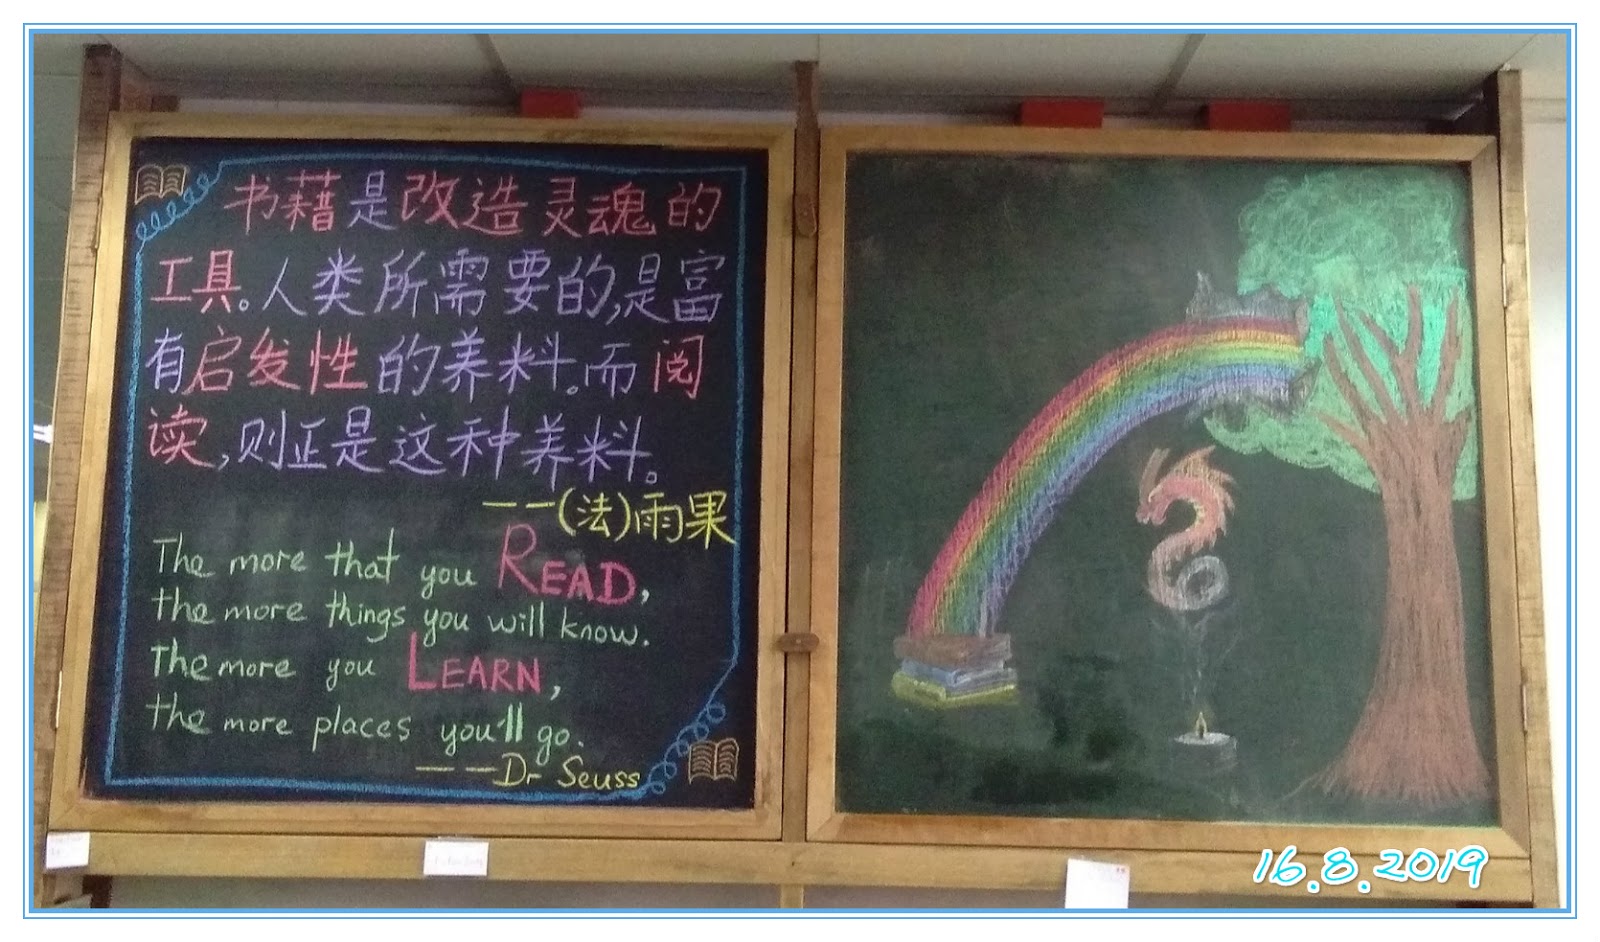 书藉是改造灵魂的
工具。人类所需要的,是富
有启发性的养料。而阅
读,则正是这种养料。
——(法)雨果
The more that you READ,
the more things you will know.
The more you LEARN,
the more places you'll go.
——Dr Seuss
16.8.2019